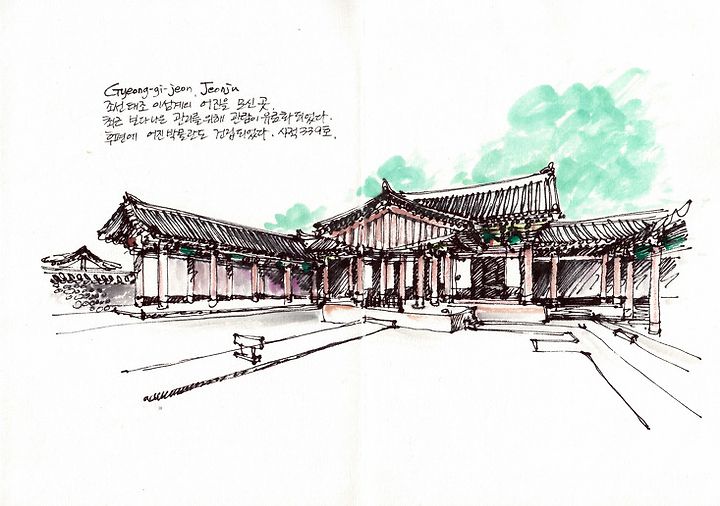 Gyeong-gi-jeon, Jeonju
조선태조 이성계의 어진을 모신 곳.
최근 보다나은 관리를 위해 관람이 유료화 되었다.
후편에 어진박물관도 건립되었다. 사적 339호.